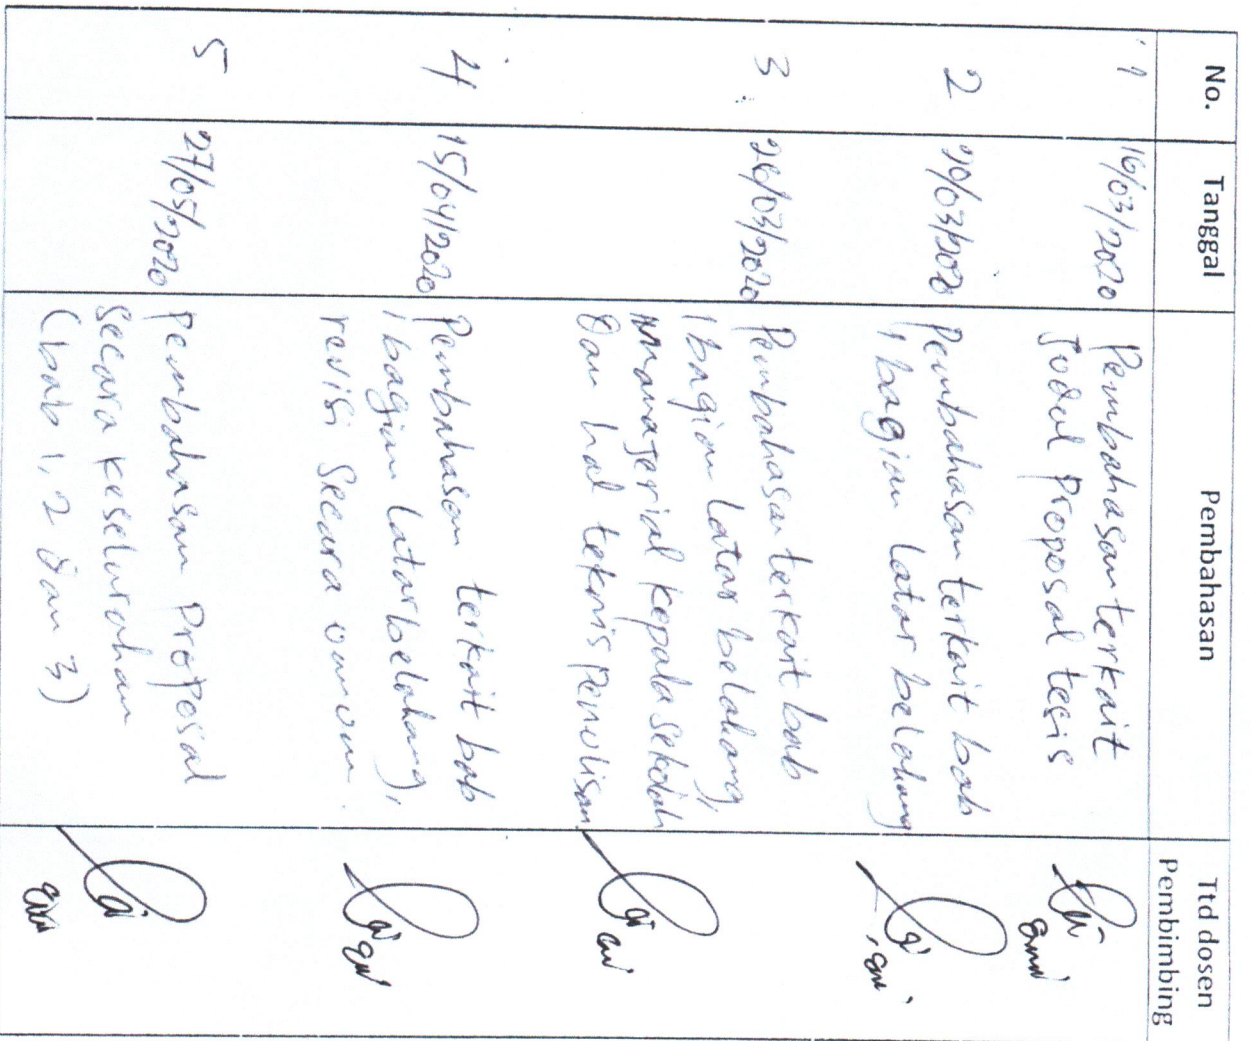 No. Tanggal Pembahasan Ttd dosen
Pembimbing
1 16/03/2020 Pembahasan terkait
Judul Proposal tesis
2 20/03/2020 Pembahasan terkait bab
1 bagian latar belakang
3 26/03/2020 Pembahasan terkait bab
1 bagian latar belakang,
manajerial kepala sekolah
dan hal teknis penulisan
4 15/04/2020 Pembahasan terkait bab
1 bagian latar belakang,
revisi secara umum.
5 27/05/2020 Pembahasan Proposal
secara keseluruhan
(bab 1, 2 dan 3)